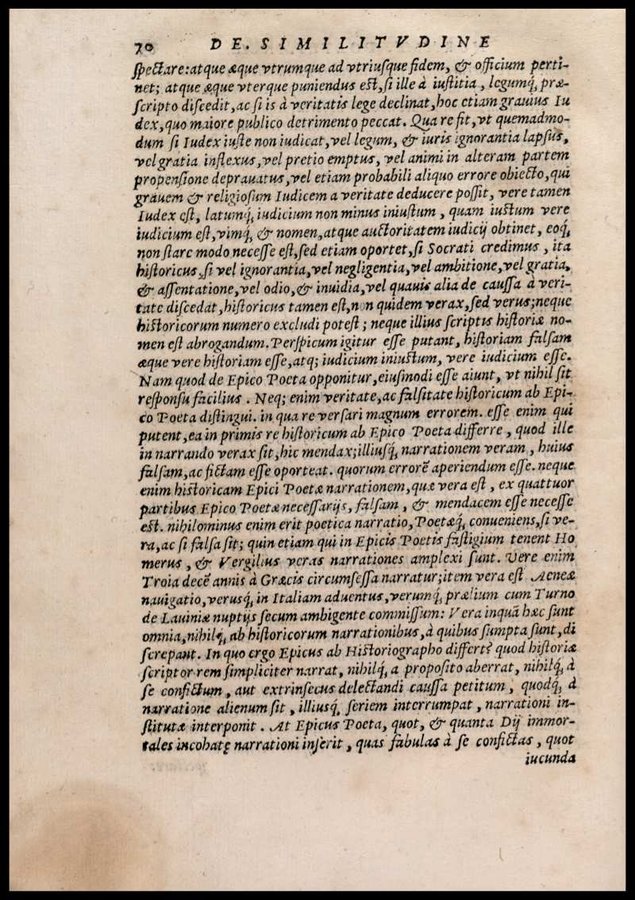 70 DE. SIMILITVDINE
spectare: atque æque vtrumque ad vtriusque fidem, & officium perti-
net; atque æque vterque puniendus est, si ille à iustitia, legumq́, præ-
scripto discedit, ac si is à veritatis lege declinat, hoc etiam grauius Iu
dex, quo maiore publico detrimento peccat. Qua re fit, vt quemadmo-
dum si Iudex iuste non iudicat, vel legum, & iuris ignorantia lapsus,
vel gratia inflexus, vel pretio emptus, vel animi in alteram partem
propensione deprauatus, vel etiam probabili aliquo errore obiecto, qui
grauem & religiosum Iudicem a veritate deducere possit, vere tamen
Iudex est, latumq́, iudicium non minus iniustum, quam iustum vere
iudicium est, vimq́, & nomen, atque auctoritatem iudicij obtinet, eoq́,
non stare modo necesse est, sed etiam oportet, si Socrati credimus, ita
historicus, si vel ignorantia, vel negligentia, vel ambitione, vel gratia,
& assentatione, vel odio, & inuidia, vel quauis alia de caussa à veri-
tate discedat, historicus tamen est, non quidem verax, sed verus; neque
historicorum numero excludi potest; neque illius scriptis historiæ no-
men est abrogandum. Perspicuum igitur esse putant, historiam falsam
æque vere historiam esse, atq; iudicium iniustum, vere iudicium esse.
Nam quod de Epico Poeta opponitur, eiusmodi esse aiunt, vt nihil sit
responsu facilius. Neq; enim veritate, ac falsitate historicum ab Epi-
co Poeta distingui. in qua re versari magnum errorem. esse enim qui
putent, ea in primis re historicum ab Epico Poeta differre, quod ille
in narrando verax sit, hic mendax; illiusq́, narrationem veram, huius
falsam, ac fictam esse oporteat. quorum errorẽ aperiendum esse. neque
enim historicam Epici Poetæ narrationem, quæ vera est, ex quattuor
partibus Epico Poetæ necessarijs, falsam, & mendacem esse necesse
est. nihilominus enim erit poetica narratio, Poetæq́, conueniens, si ve-
ra, ac si falsa sit; quin etiam qui in Epicis Poetis fastigium tenent Ho
merus, & Vergilius veras narrationes amplexi sunt. Vere enim
Troia decẽ annis à Græcis circumsessa narratur; item vera est Aeneæ
nauigatio, verusq́, in Italiam aduentus, verumq́, prælium cum Turno
de Lauiniæ nuptijs secum ambigente commissum: Vera inquã hæc sunt
omnia, nihilq́, ab historicorum narrationibus, à quibus sumpta sunt, di
screpant. In quo ergo Epicus ab Historiographo differt? quod historiæ
scriptor rem simpliciter narrat, nihilq́, a proposito aberrat, nihilq́, à
se confictum, aut extrinsecus delectandi caussa petitum, quodq́, à
narratione alienum sit, illiusq́, seriem interrumpat, narrationi in-
stitutæ interponit. At Epicus Poeta, quot, & quanta Dij immor-
tales incohatę narrationi inserit, quas fabulas à se confictas, quot
iucunda